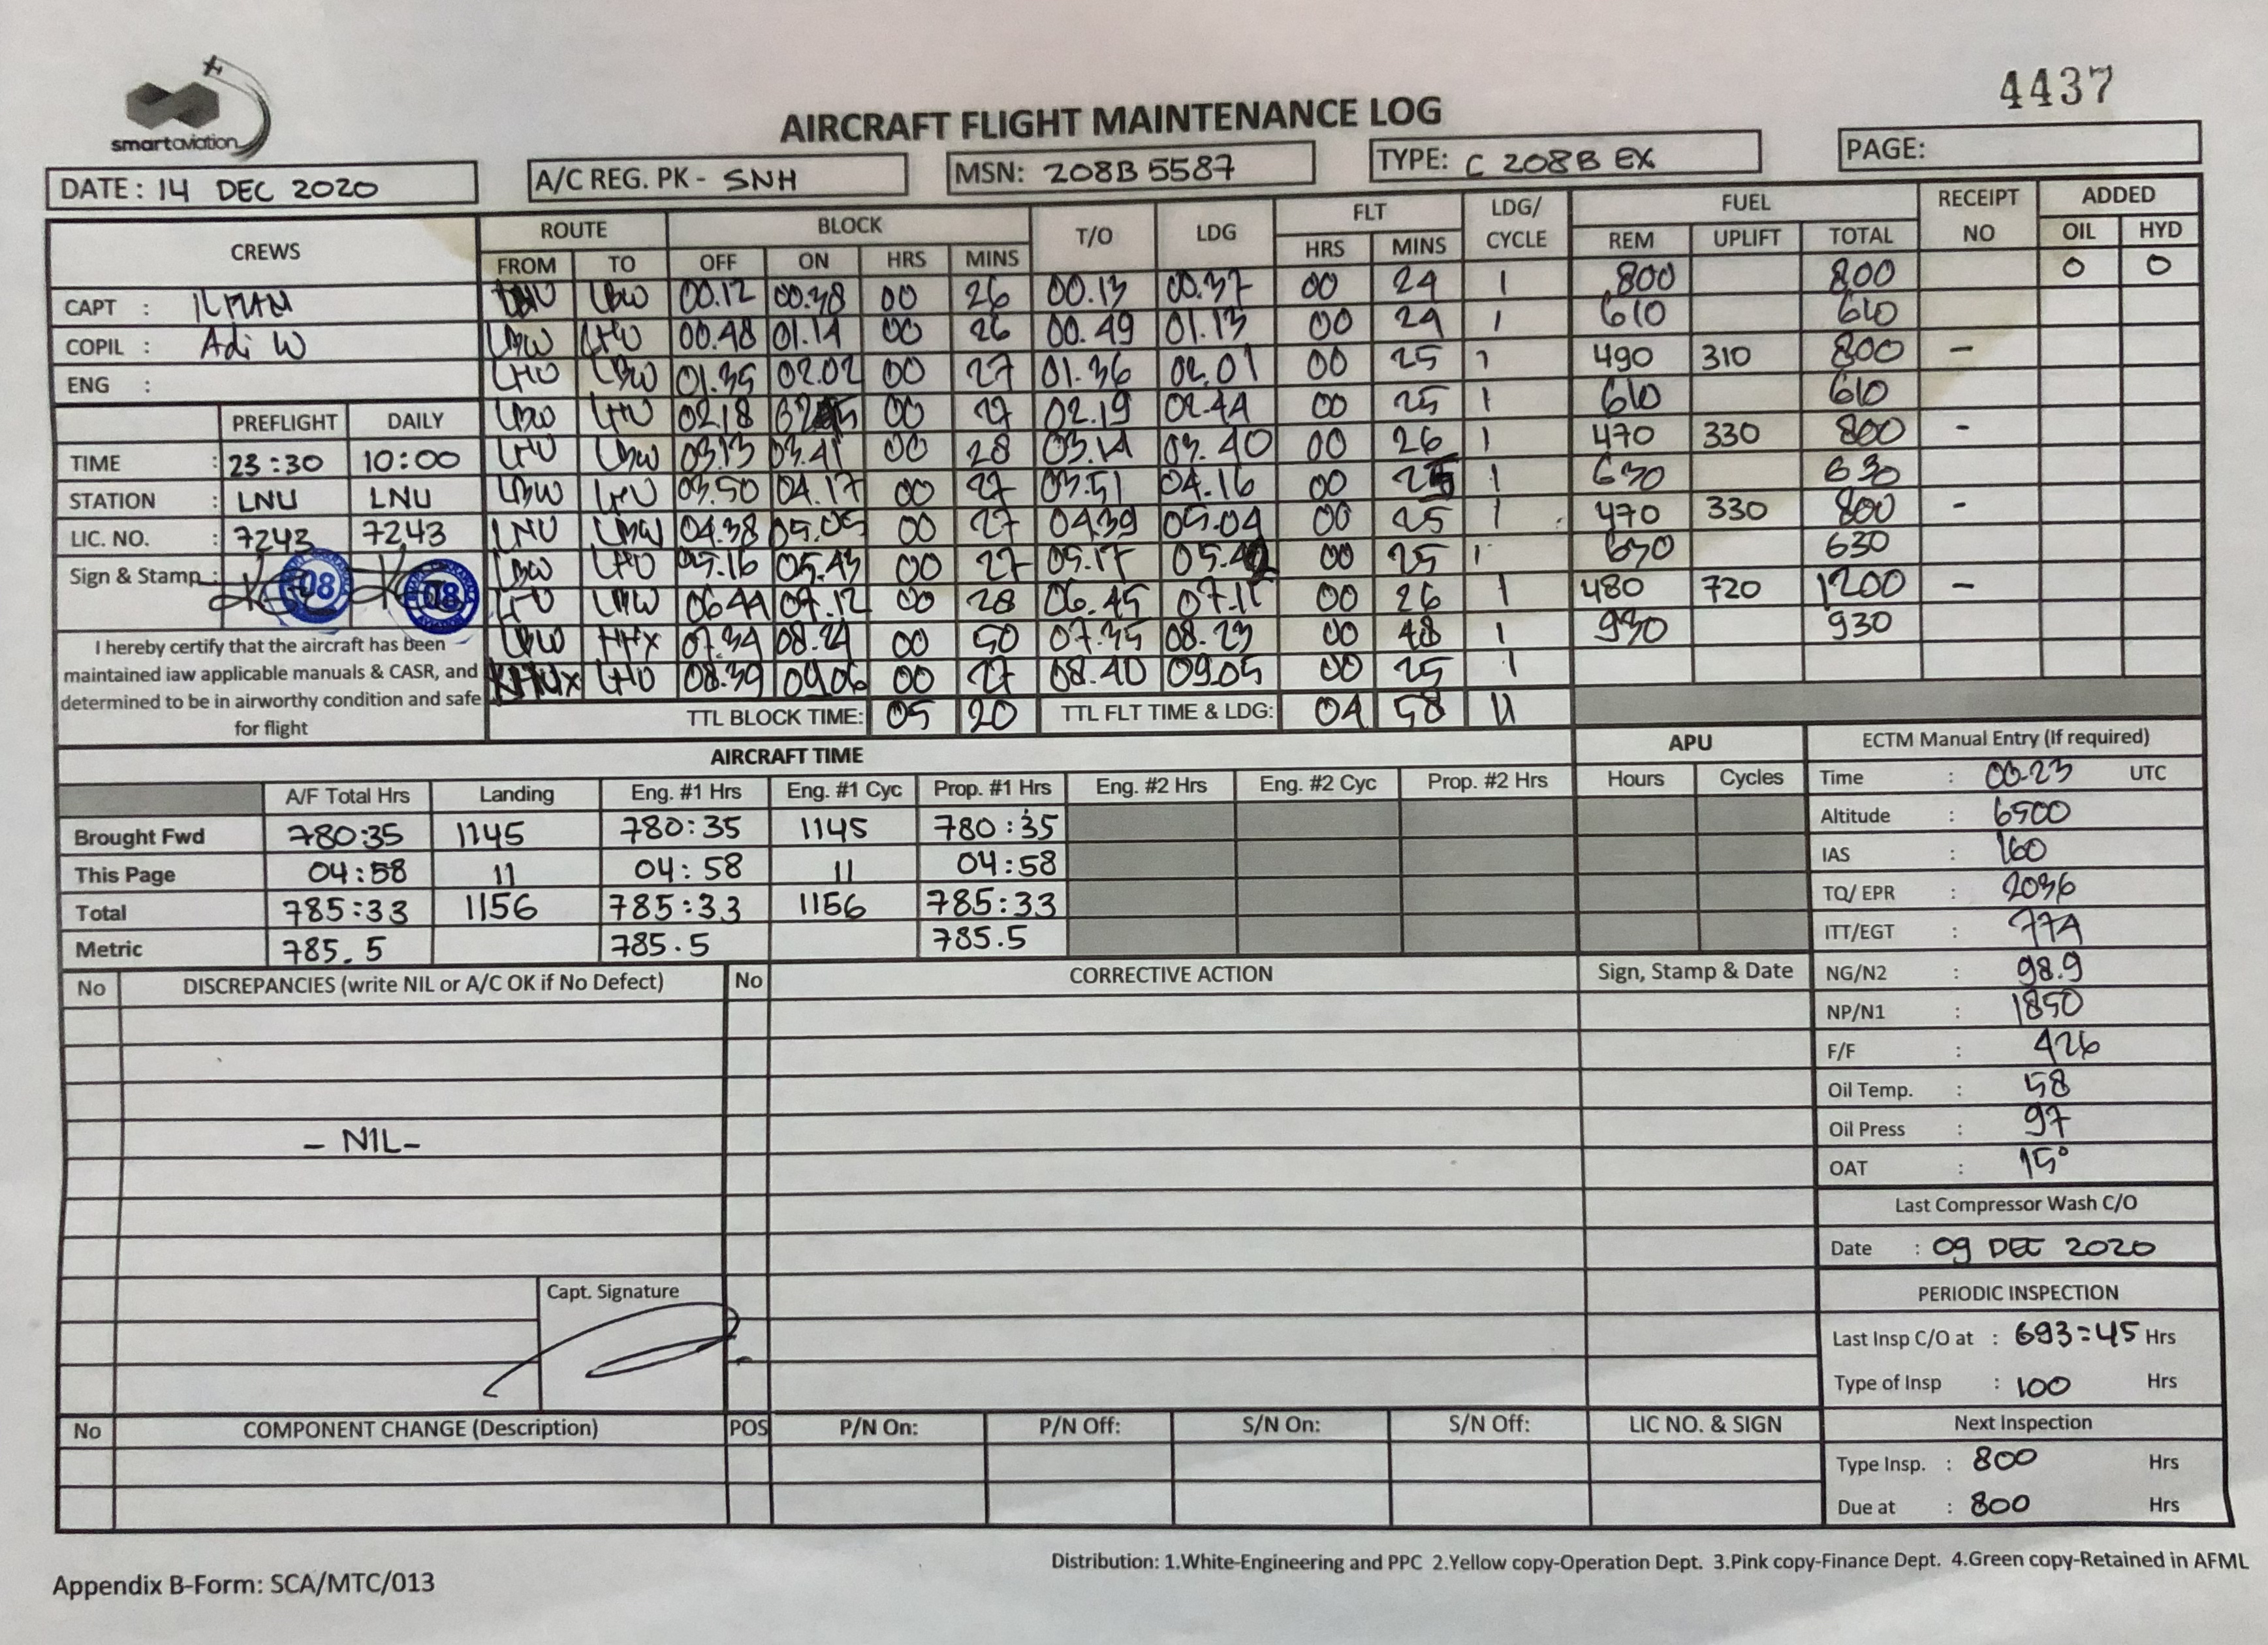 4437
smartaviation
AIRCRAFT FLIGHT MAINTENANCE LOG
DATE : 14 DEC 2020 A/C REG. PK - SNH MSN: 208B 5587 TYPE: C 208B EX PAGE:
CREWS ROUTE BLOCK T/O LDG FLT LDG/ CYCLE FUEL RECEIPT NO ADDED
FROM TO OFF ON HRS MINS HRS MINS REM UPLIFT TOTAL OIL HYD
CAPT : LBW 00.12 00.38 00 26 00.13 00.37 00 24 1 800 800 0 0
COPIL : Adi W LBW 00.48 01.14 00 26 00.49 01.13 00 24 1 610 610
ENG : LBW 01.35 02.02 00 27 01.36 02.01 00 25 1 490 310 800 -
PREFLIGHT DAILY LBW 02.18 00 27 02.19 02.44 00 25 1 610 610
TIME : 23:30 10:00 LBW 03.13 03.41 00 28 03.14 03.40 00 26 1 470 330 800 -
STATION : LNU LNU LBW 03.50 04.17 00 27 03.51 04.16 00 25 1 630 630
LIC. NO. : 7243 7243 LNU LBW 04.38 05.05 00 27 04.39 05.04 00 25 1 470 330 800 -
Sign & Stamp : 08 08 LBW 05.16 05.43 00 27 05.17 05.42 00 25 1 630 630
06.44 07.12 00 28 06.45 07.11 00 26 1 480 720 1200 -
LBW 07.34 08.24 00 50 07.35 08.23 00 48 1 930 930
08.39 09.06 00 27 08.40 09.05 00 25 1
I hereby certify that the aircraft has been
maintained iaw applicable manuals & CASR, and
determined to be in airworthy condition and safe
for flight
TTL BLOCK TIME: 05 20 TTL FLT TIME & LDG: 04 58 11
AIRCRAFT TIME APU
A/F Total Hrs Landing Eng. #1 Hrs Eng. #1 Cyc Prop. #1 Hrs Eng. #2 Hrs Eng. #2 Cyc Prop. #2 Hrs Hours Cycles
Brought Fwd 780:35 1145 780:35 1145 780:35
This Page 04:58 11 04:58 11 04:58
Total 785:33 1156 785:33 1156 785:33
Metric 785.5 785.5 785.5
ECTM Manual Entry (If required)
Time : 00.23 UTC
Altitude : 6500
IAS : 160
TQ/ EPR : 2036
ITT/EGT : 774
NG/N2 : 98.9
NP/N1 : 1850
F/F : 426
Oil Temp. : 58
Oil Press : 97
OAT : 15°
Last Compressor Wash C/O
Date : 09 DEC 2020
PERIODIC INSPECTION
Last Insp C/O at : 693=45 Hrs
Type of Insp : 100 Hrs
Next Inspection
Type Insp. : 800 Hrs
Due at : 800 Hrs
No DISCREPANCIES (write NIL or A/C OK if No Defect) No CORRECTIVE ACTION Sign, Stamp & Date
- NIL-
Capt. Signature
No COMPONENT CHANGE (Description) POS P/N On: P/N Off: S/N On: S/N Off: LIC NO. & SIGN
Distribution: 1.White-Engineering and PPC 2.Yellow copy-Operation Dept. 3.Pink copy-Finance Dept. 4.Green copy-Retained in AFML
Appendix B-Form: SCA/MTC/013